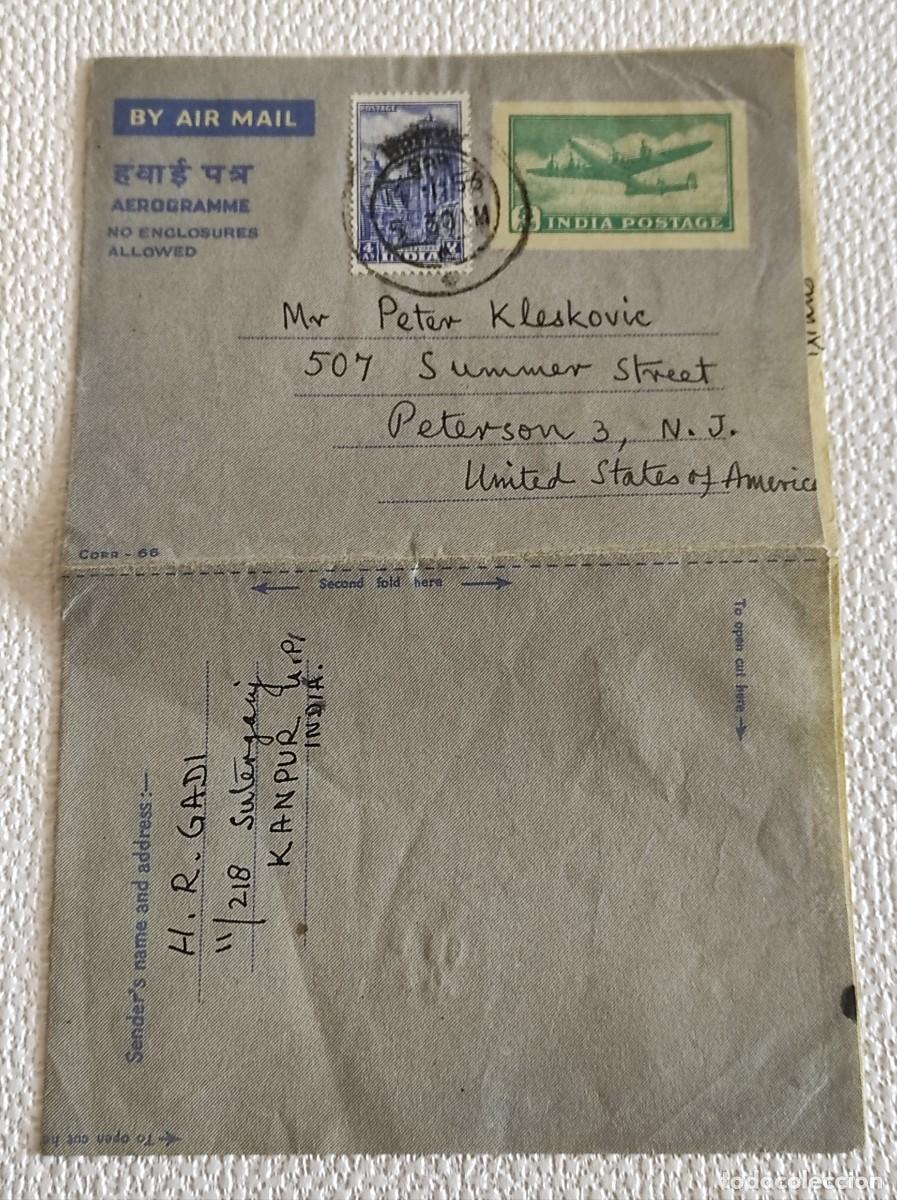 BY AIR MAIL
हवाई पत्र
AEROGRAMME
NO ENCLOSURES
ALLOWED
POSTAGE
4 As
INDIA
11 56
30 AM
INDIA POSTAGE
Mr Peter Kleskovic
507 Summer Street
Peterson 3, N.J.
United States of America
CORR - 66
Second fold here
To open cut here
Sender's name and address:—
H. R. GADI
11/218 Suterganj
KANPUR U.P.
INDIA.
To open cut he
todocoleccion